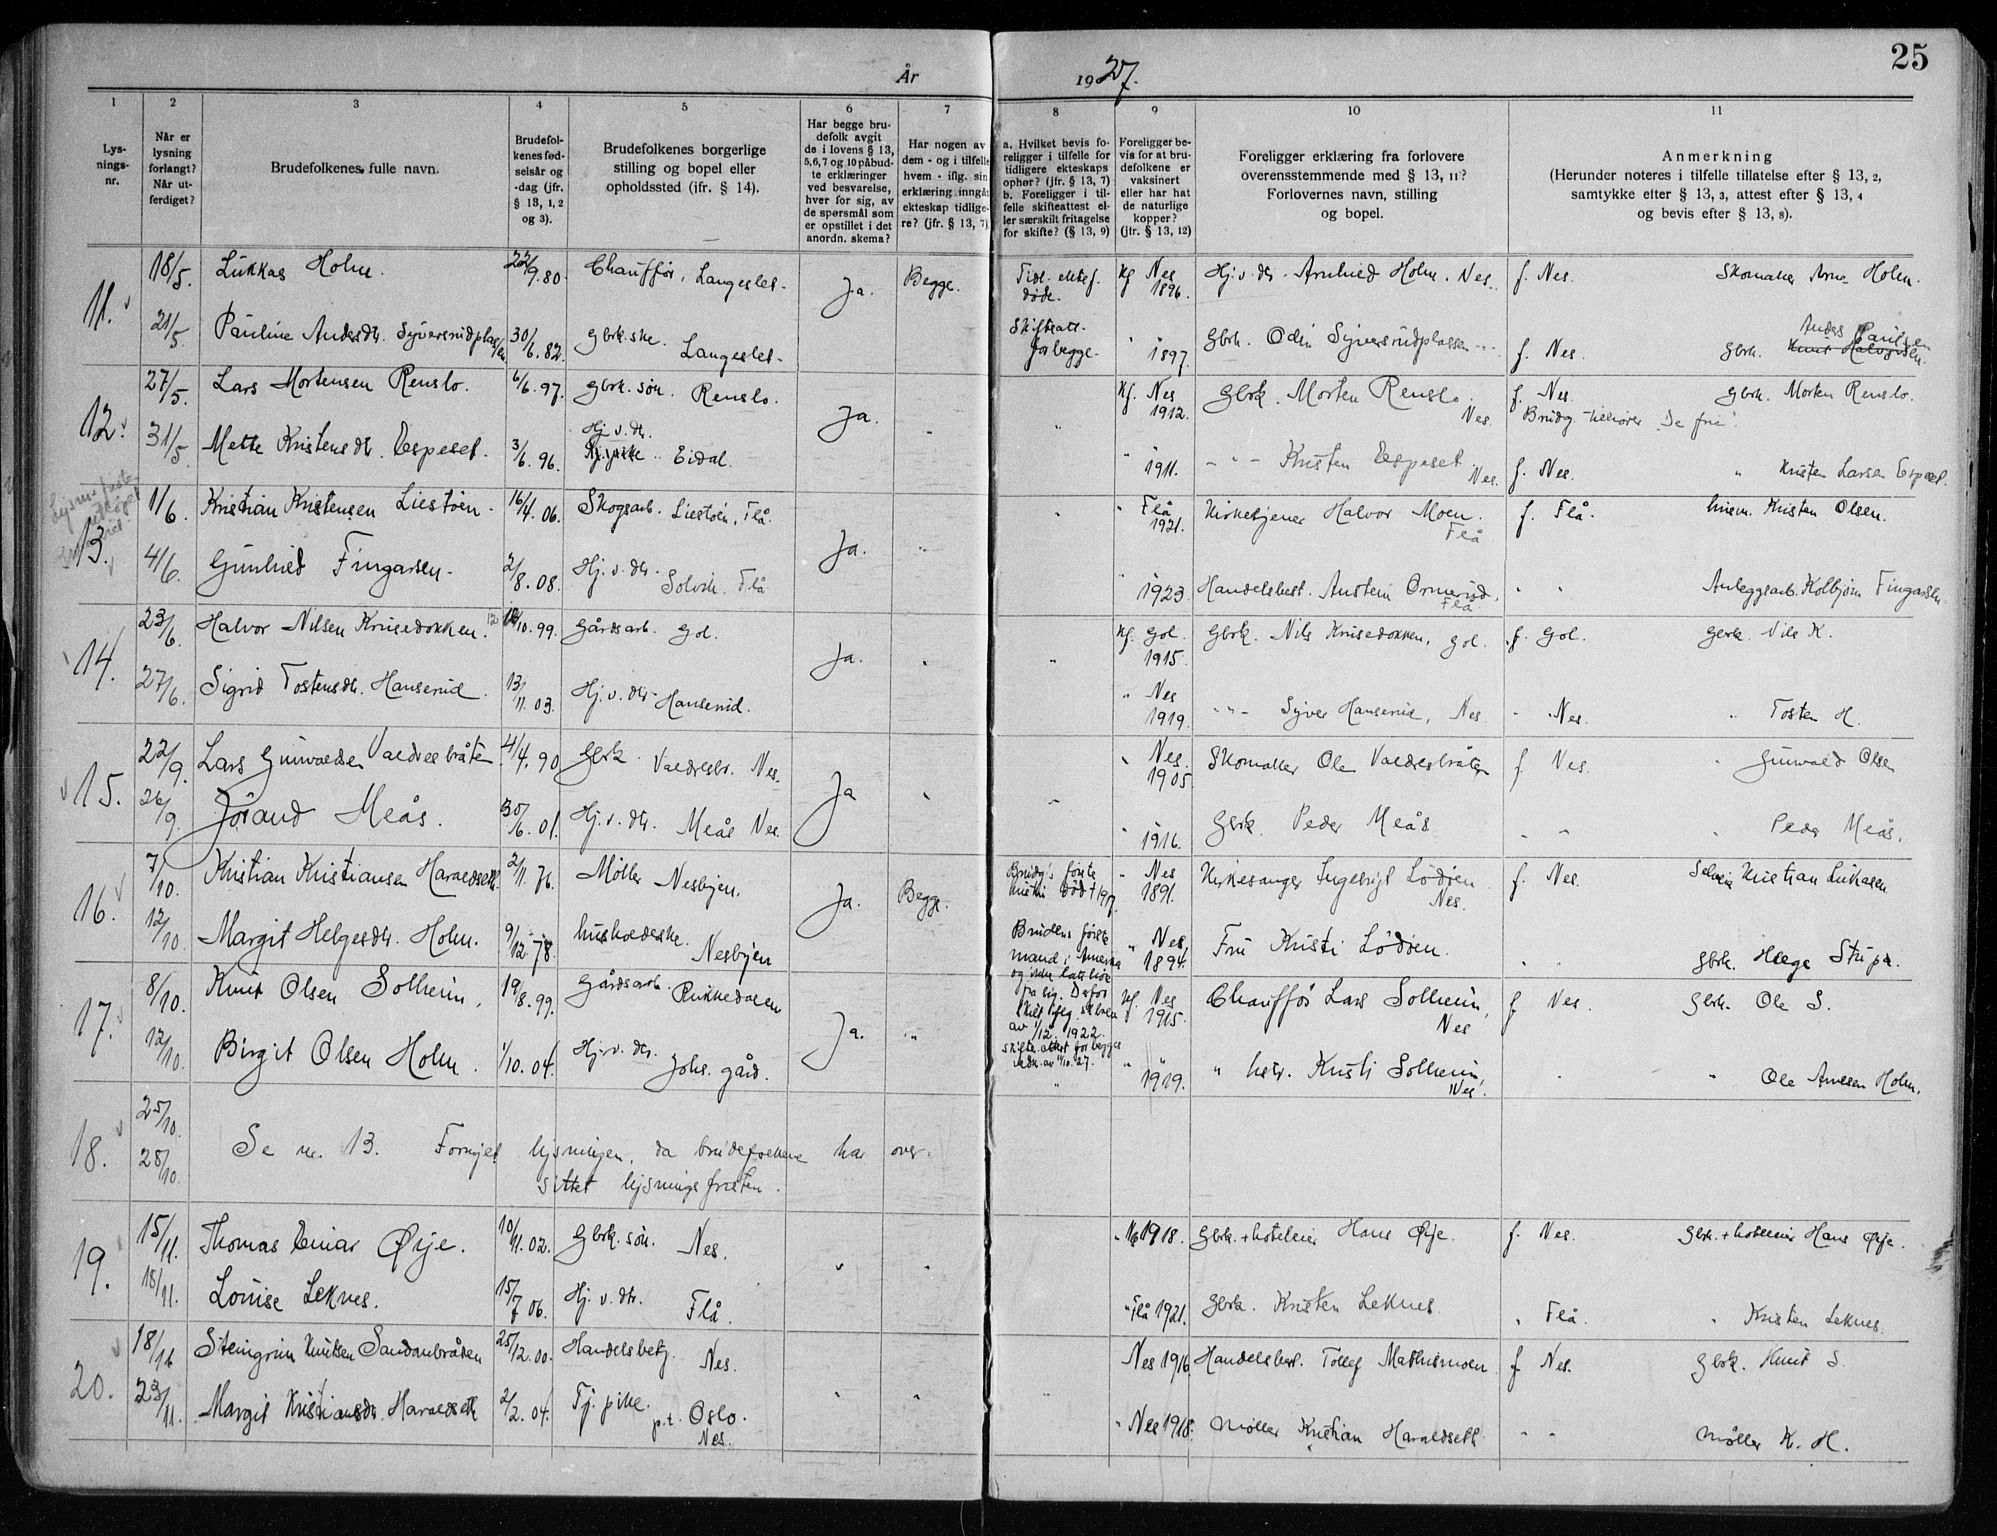 25
År 1927.
1 2 3 4 5 6 7 8 9 10 11
Lys-
nings-
nr.
Når er
lysning
forlangt?
Når ut-
ferdiget?
Brudefolkenes fulle navn.
Brudefol-
kenes fød-
selsår og
-dag (jfr.
§ 13, 1, 2
og 3).
Brudefolkenes borgerlige
stilling og bopel eller
opholdssted (jfr. § 14).
Har begge bru-
defolk avgit
de i lovens § 13,
5, 6, 7 og 10 påbud-
te erklæringer
ved besvarelse,
hver for sig, av
de spørsmål som
er opstillet i det
anordn. skema?
Har nogen av
dem - og i tilfelle
hvem - iflg. sin
erklæring inngått
ekteskap tidlige-
re? (jfr. § 13, 7)
a. Hvilket bevis fo-
religger i tilfelle for
tidligere ekteskaps
ophør? (jfr. § 13, 7)
b. Foreligger i til-
felle skifteattest el-
ler særskilt fritagelse
for skifte? (§ 13, 9)
Foreligger be-
vis for at bru-
defolkene er
vaksinert
eller har hat
de naturlige
kopper?
(jfr. § 13, 12)
Foreligger erklæring fra forlovere
overensstemmende med § 13, 11?
Forlovernes navn, stilling
og bopel.
Anmerkning
(Herunder noteres i tilfelle tillatelse efter § 13, 2,
samtykke efter § 13, 3, attest efter § 13, 4
og bevis efter § 13, 8).
11. 18/5 Lukkas Holm. 22/9.80. Chauffør, Langeslet. Ja. Begge. Tidl. ektef. døde. Kf Nes 1896. Hj. v. dtr. Arnhild Holm. Nes. f. Nes. Skomaker Arne Holm.
21/5 Pauline Andersdtr. Syversrudplassen 30/6.82. gbrk. ske. Langeslet. Skifteatt. for begge. " 1897. Gbrk. Odin Syversrudplassen " f. Nes. gbrk. Anders Paulsen
12. 27/5. Lars Mortensen Renslo. 6/6.97. gbrk. søn. Renslo. Ja. " " Kf. Nes 1912. Gbrk. Morten Renslo. Nes. f. Nes. gbrk. Morten Renslo.
Brudg. tilhører "De frie".
31/5. Mette Kristensdtr. Espeset. 3/6.96. Hj. v. dtr. Eidal. " 1911. - " - Kristen Espeset. Nes. f. Nes. " Kristen Larsen Espeset.
13. 1/6. Kristian Kristensen Liestøen. 16/4.06. Skogsarb. Liestøen, Flå. Ja. " " " Flå 1921. Kirketjener Halvor Moen. Flå f. Flå. husm. Kristen Olsen.
4/6. Gunhild Fingarsen. 2/8.08. Hj. v. dtr. Solvik. Flå " 1923. Handelsbest. Austein Ormerud. Flå " " Anleggsarb. Kolbjørn Fingarsen.
14. 23/6. Halvor Nilsen Krusedokken. 12/10.99. gårdsarb. Gol. Ja. " " Kf. Gol. 1915. Gbrk. Nils Krusedokken, Gol. f. Gol. gbrk. Nils K.
27/6. Sigrid Tostensdtr. Hanserud. 13/11.03. Hj. v. dtr. Hanserud. " Nes 1919. - " - Syver Hanserud, Nes. " Nes. " Tosten H.
15. 22/9. Lars Gunvaldsen Valdresbråten 4/4.90 gbrk. Valdresbr. Nes. Ja " " " Nes. 1905. Skomaker Ole Valdresbråten f. Nes. " Gunvald Olsen
26/9. Jørand Meås. 30/6.01. Hj. v. dtr. Meås Nes. " 1916. Gbrk. Peder Meås " " " Peder Meås.
16. 7/10. Kristian Kristiansen Haraldseth. 2/11.76. Møller Nesbyen. Ja. Begge. Brudg's første hustru død 1917. " Nes 1891. Kirkesanger Ingebrigt Lødøen. Nes. f. Nes. Selveier Kristian Lukasen
12/10. Margit Helgesdtr. Holm. 9/12.78. husholdske. Nesbyen Brudens første mand i Amerika " Nes 1894. Fru Kristi Lødøen. " " gbrk. Helge Stripa.
17. 8/10. Knut Olsen Solheim. 19/8.99. gårdsarb. Rukkedalen Ja. " av 1/12 1922. skifte attest for begge Kf. Nes 1915. Chauffør Lars Solheim, Nes f Nes. Gbrk. Ole S.
12/10. Birgit Olsen Holm. 1/10.04. Hj. v. dtr. Johs. gård. " " 1919. " hstr. Kristi Solheim, Nes. " " Ole Arnesen Holm.
18. 25/10. 28/10. Se nr. 13. Fornyet lysningen, da brudefolkene har over-
sittet lysningsfristen.
19. 15/11. Thomas Einar Øije. 10/11.02. Gbrk. søn. Nes. " " " Nes 1918. Gbrk. + hoteleier Hans Øije. f. Nes. Gbrk. + hoteleier Hans Øije.
18/11. Louise Leknes. 15/7 06. Hj. v. dtr. Flå. " Flå 1921. Gbrk. Kristen Leknes. " Flå. " Kristen Leknes.
20. 18/11 Steingrim Knutsen Sandanbråten 25/12.00. Handelsbetj. Nes. " " " Nes 1916 Handelsbest. Tolleif Mathismoen f Nes. Gbrk. Knut S.
23/11. Margit Kristiansdtr. Haraldseth 2/2.04. Tj. pike. p.t. Oslo. Nes. " Nes 1918. Møller Kristian Haraldseth " " Møller K. H.